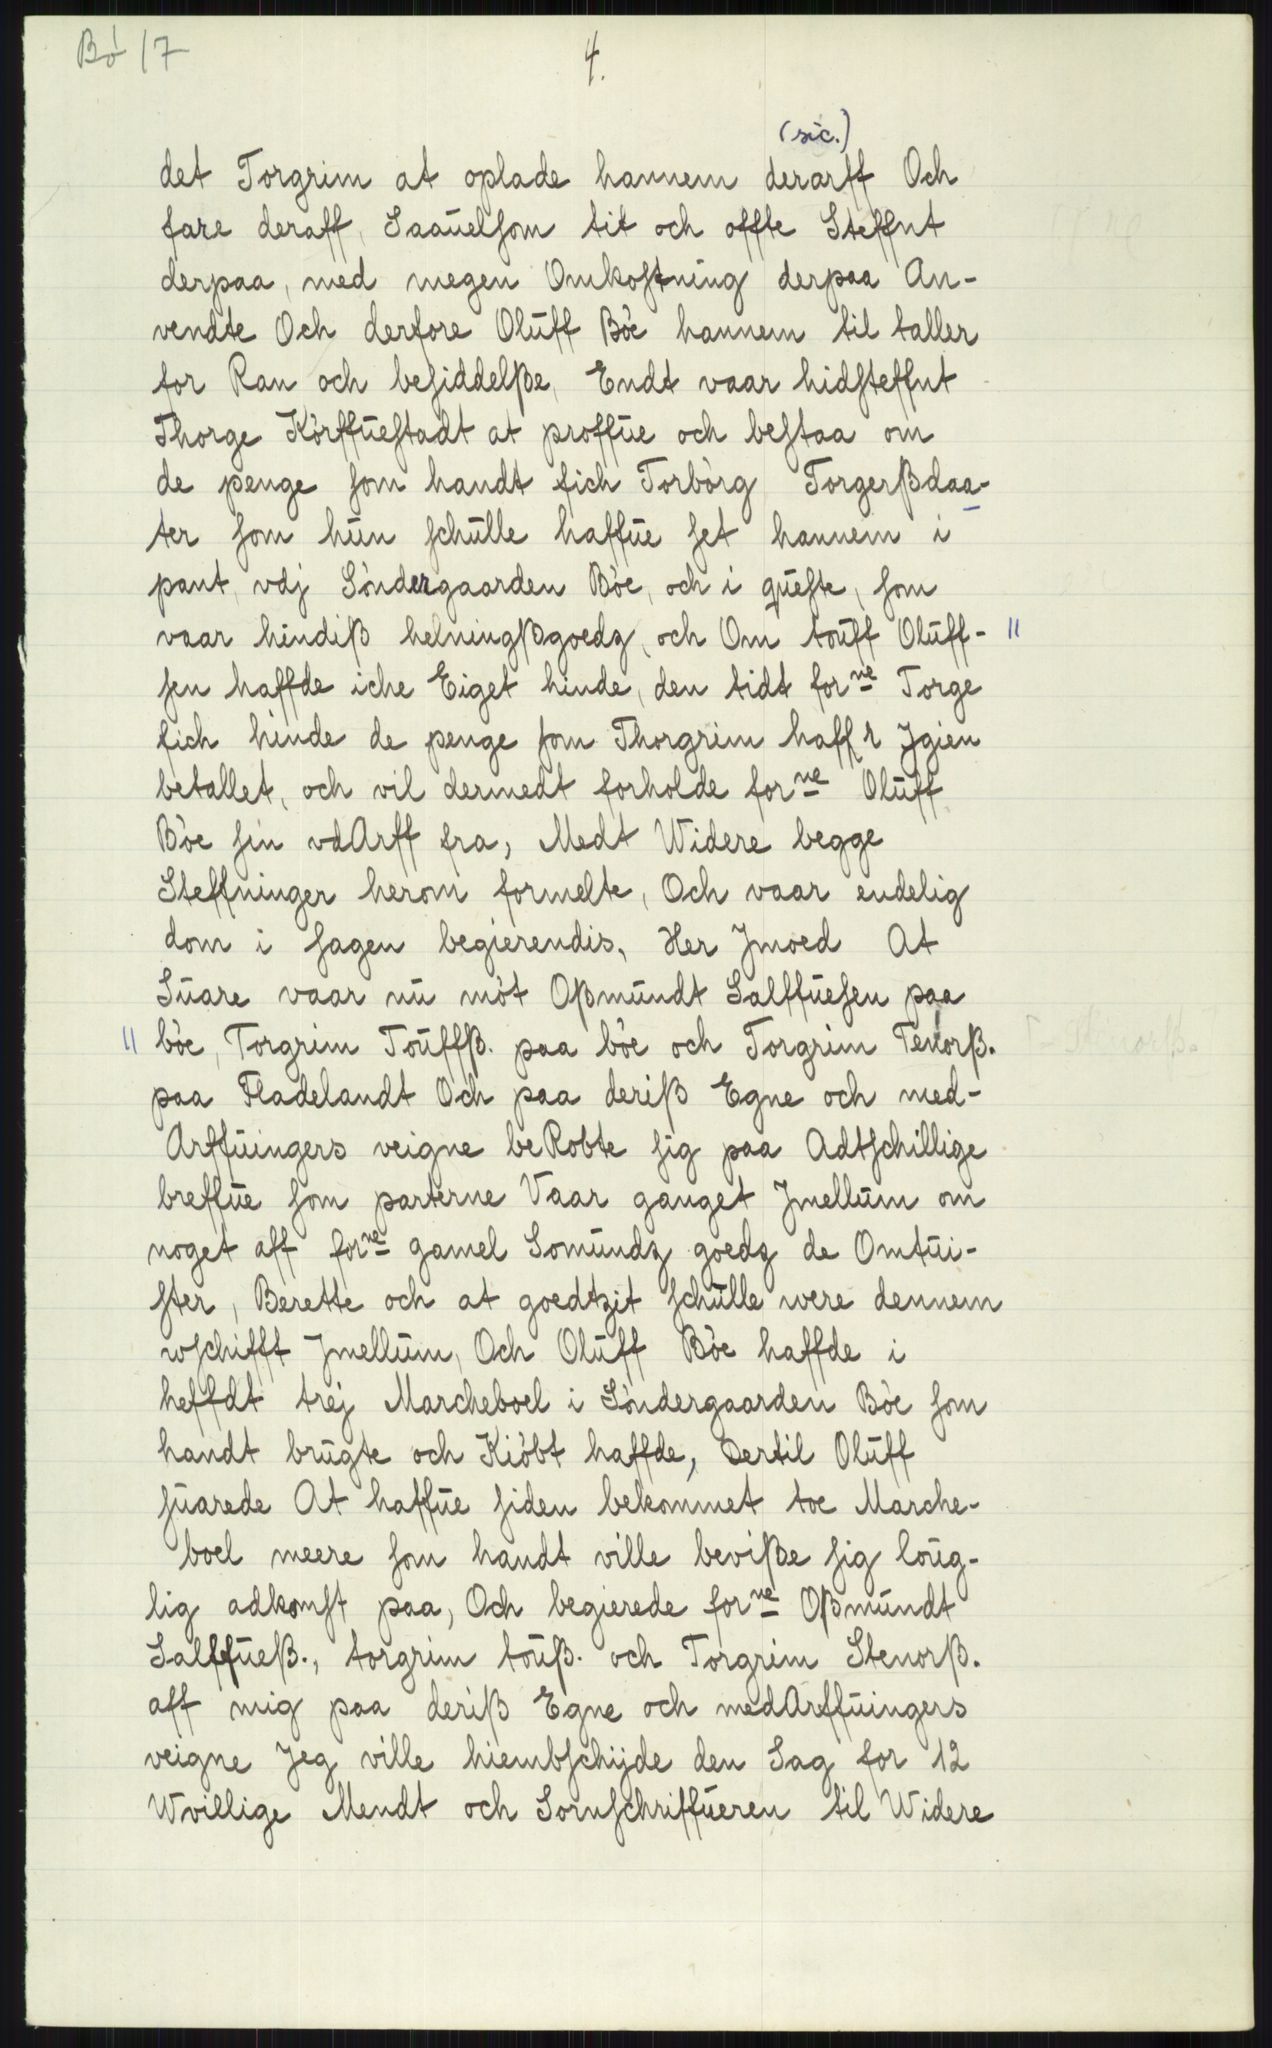 Bö 17
4.
(sic.)
det Torgrim at oplade hannem derarff Och
fare deraff, Saauelsom tit och offte Steffnt
derpaa, med megen Omkostning derpaa An-
vendte Och derfore Oluff Böe hannem til taller
for Ran och besiddelße, Endt vaar hidsteffnt
Thorge Körffuestadt at proffue och bestaa om
de penge som handt fich Torbörg Torgerßdaa-
ter som hun schulle haffue set hannem i
pant, vdj Söndergaarden Böe, och i queste, som
vaar hindiß helningßgoedz, och Om touff Oluff- "
sen haffde iche Eiget hinde, den tidt forne Torge
fich hinde de penge som Thorgrim haffr Jgien
betallet, och vil dermedt forholde forne Oluff
Böe sin vdArff fra, Medt Widere begge
Steffninger herom formelte, Och vaar endelig
dom i sagen begierendis, Her Jmoed At
Suare vaar nu möt Oßmundt Salffuesen paa
" böe, Torgrim Touffß. paa böe och Torgrim Tenorß. Stenorß.
paa Fladelandt Och paa deriß Egne och med-
Arffuingers veigne beRobte sig paa Adtschillige
breffue som parterne Vaar ganget Jmellum om
noget aff forne gamel Somundz goedz de Omtui-
ster, Berette och at goedtzit schulle were dennem
wschifft Jmellum, Och Oluff Böe haffde i
heffdt trej Marcheboel i Söndergaarden Böe som
handt brugte och Kiöbt haffde, Dertil Oluff
suarede At haffue siden bekommet toe Marche-
boel meere som handt ville beviße sig loug-
lig adkomst paa, Och begierede forne Oßmundt
Salffueß., torgrim touß. och Torgrim Stenorß.
aff mig paa deriß Egne och medArffuingers
veigne Jeg ville hiembschijde den Sag for 12
Wvillige Mendt och Sornschriffueren til Widere